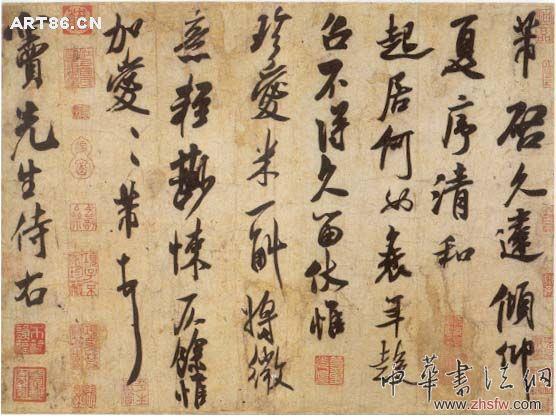 ART86.CN
芾啓久違傾仰
夏序清和
起居何如衰年趨
召不得久留伏惟
珍愛米一斛將微
意輕尠悚仄餘惟
加愛〻芾頓首
竇先生侍右
中華書法網
www.zhsfw.com